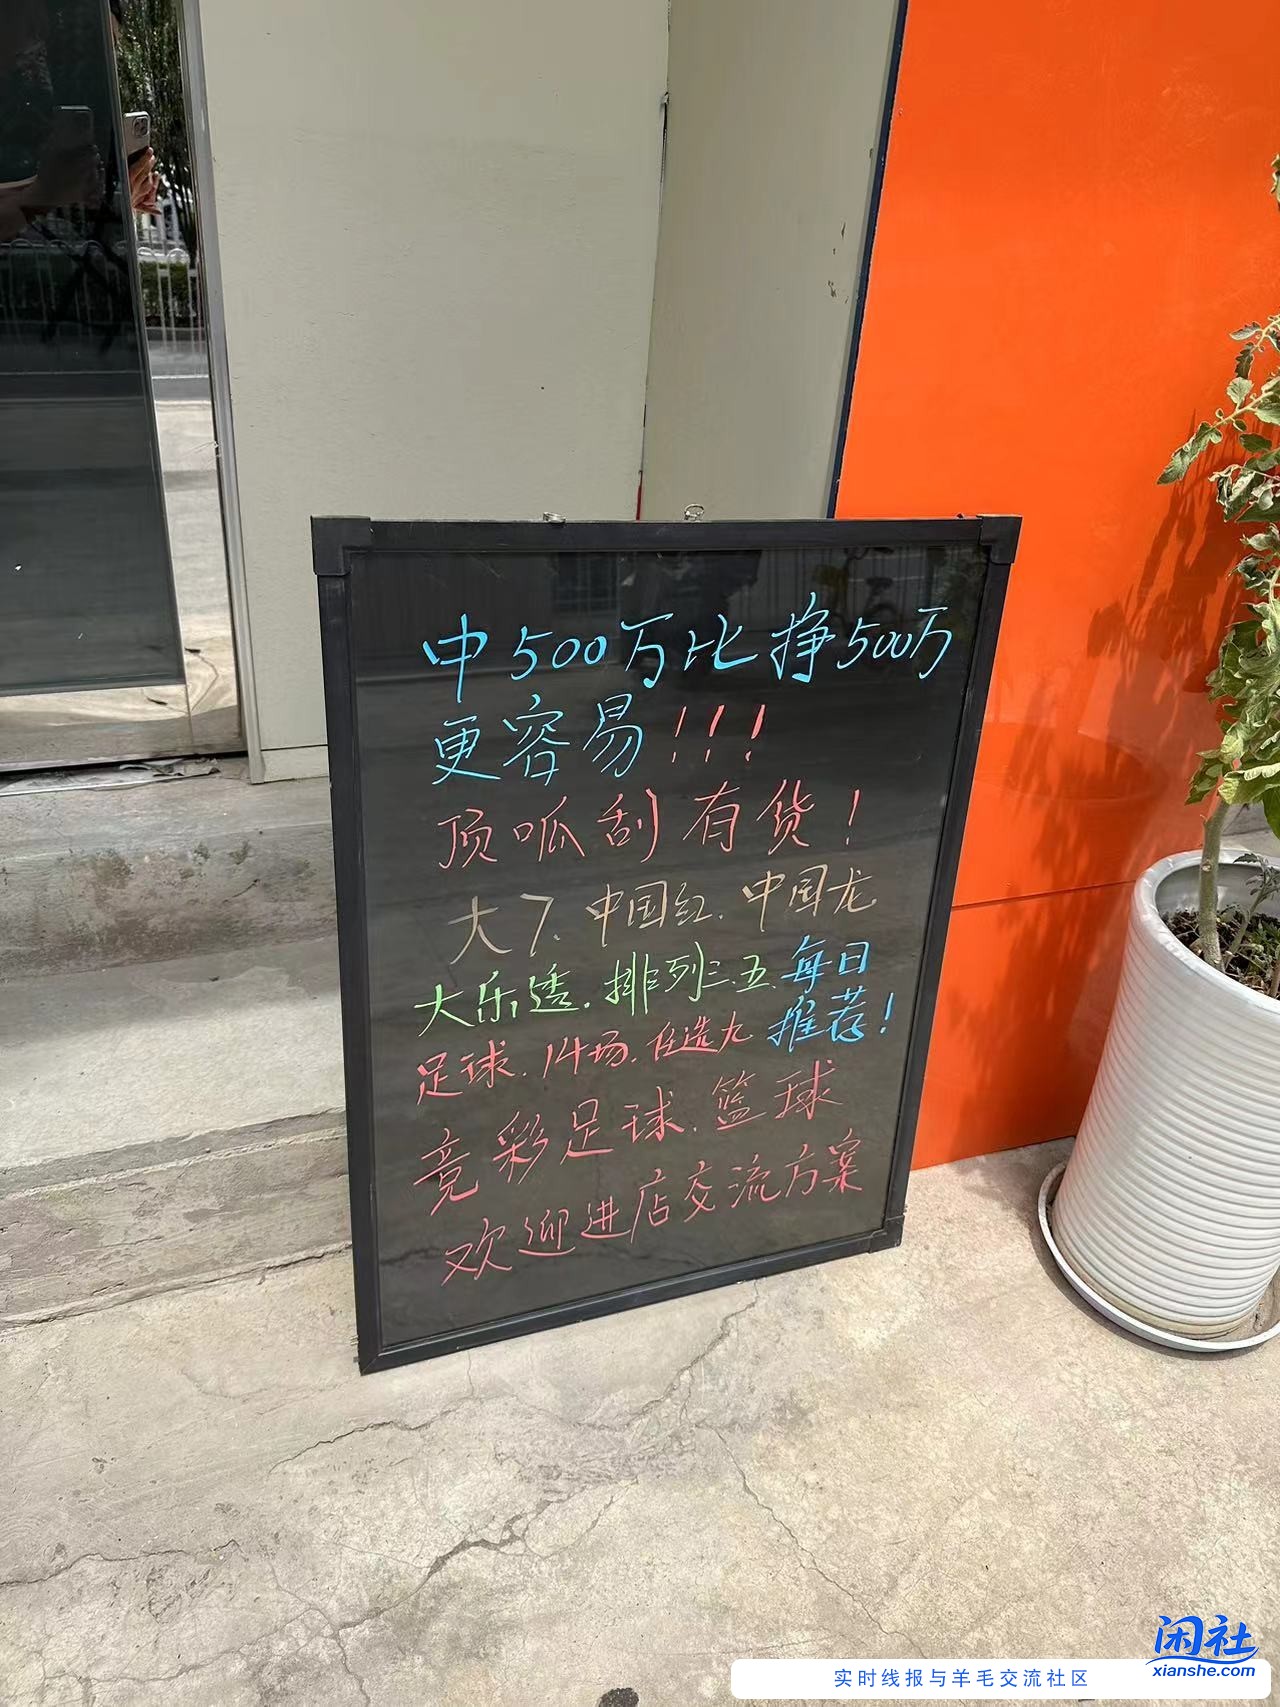 中500万比挣500万
更容易!!!
顶呱刮有货!
大7.中国红.中国龙
大乐透.排列三.五.每日
足球.14场.任选九 推荐!
竞彩足球.篮球
欢迎进店交流方案
闲社
xianshe.com
实时线报与羊毛交流社区